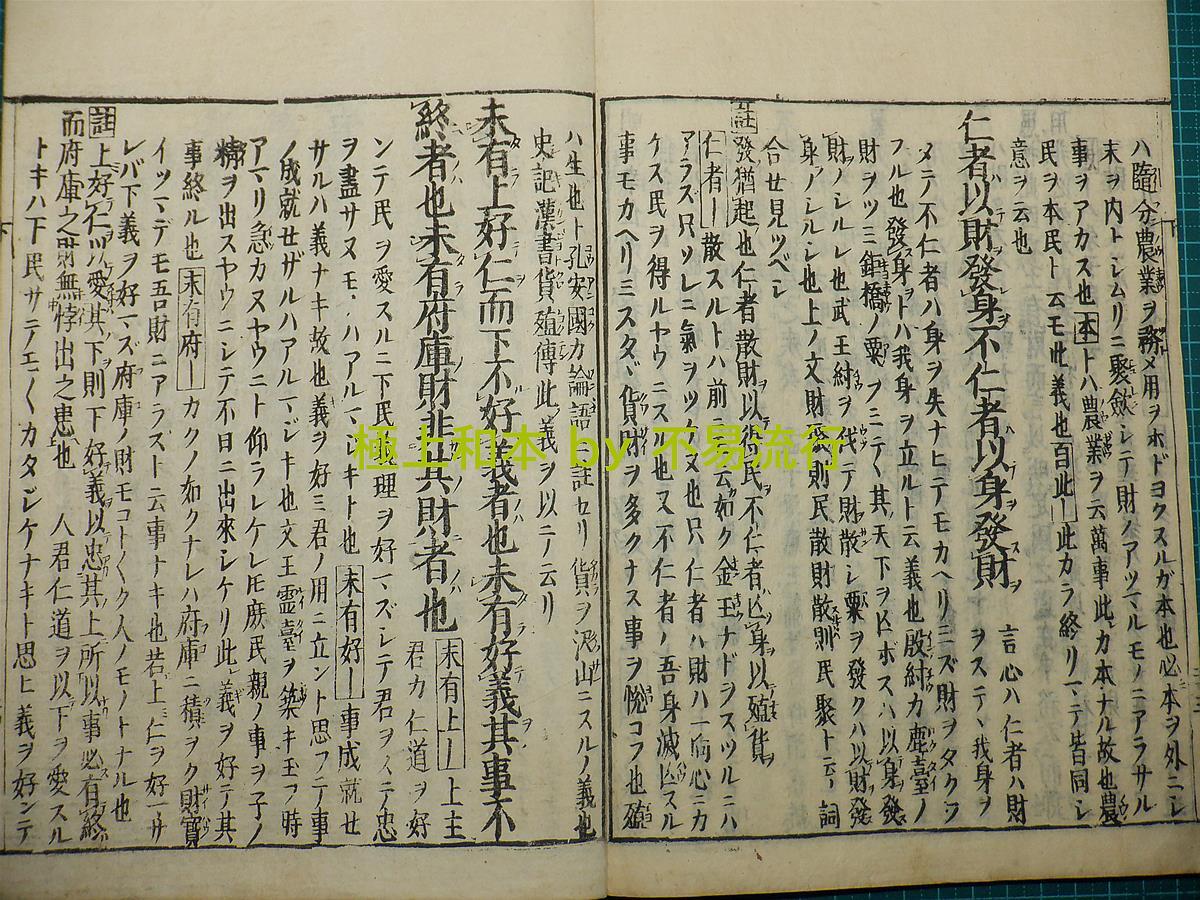 ハ隨分農業ヲ務メ用ヲホドヨクスルガ本也必本ヲ外ニシ
末ヲ内トシムリニ聚斂シテ財ノアツマルモノニアラサル
事ヲアカス也本トハ農業ヲ云萬事此カ本ナル故也農
民ヲ本民ト云モ此義也百此｜此カラ終リマテ皆同シ
意ヲ云也
仁者以財發身不仁者以身發財 言心ハ仁者ハ財
ヲステヽ我身ヲ
メニノ不仁者ハ身ヲ失ナヒテモカヘリミズ財ヲタクワ
フル也發身トハ我身ヲ立ルト云義也殷紂カ鹿臺ノ
財ヲツミ鉅橋ノ粟ヲ其天下ヲ亡ボスハ以身發
財ノシルシ也武王紂ヲ伐テ財散シ粟ヲ發クハ以財發
身ノシルシ也上ノ文財聚則民散財散則民聚ト云詞
合せ見ツベシ
註發猶起也仁者散財以得民不仁者亡身以殖貨
仁者｜散スルトハ前ニ云如ク金玉ナドヲスツルニハ
アラズ只ツシニ氣ヲツケヌ也只仁者ハ財ハ一向心ニカ
ケス民ヲ得ルヤウニスル也又不仁者ノ吾身滅亡スル
事モカヘリミスタヾ貨財ヲ多クナス事ヲ悦コフ也殖
ハ生也ト孔安國カ論語ニ註セリ貨ヲ沢山ニスルノ義也
史記漢書貨殖傳此義ヲ以ニノ云リ
未有上好仁而下不好義者也未有好義其事不
終者也未有府庫財非其財者也 未有上｜上主
君カ仁道ヲ好
ンテ民ヲ愛スルニ下民義理ヲ好マズシテ君ヲスニノ忠
ヲ盡サヌモノハアルマシキト也未有好｜事成就せ
サルハ義ナキ故也義ヲ好ミ君ノ用ニ立ント思フニノ事
ノ成就せザルハアルマジキ也文王靈臺ヲ築キ玉フ時
アマリ急カヌヤウニト仰ラレケレ𪜈庶民親ノ事ヲ子ノ
精ヲ出スヤウニシテ不日ニ出來シケリ此義ヲ好テ其
事終ル也未有府｜カクノ如クナレハ府庫ニ積ク財寶
イツマデモ吾財ニアラスト云事ナキ也若上仁ヲ好マサ
レバ下義ヲ好マズ府庫ノ財モコト〱ク人ノモノトナル也
註上好仁以愛其下則下好義以忠其上所以事必有終
而府庫之財無悖出之患也 人君仁道ヲ以下ヲ愛スル
トキハ下民サテノエ〱カタジケナキト思ヒ義ヲ好ンテ
下
下
極上和本 by 不易流行